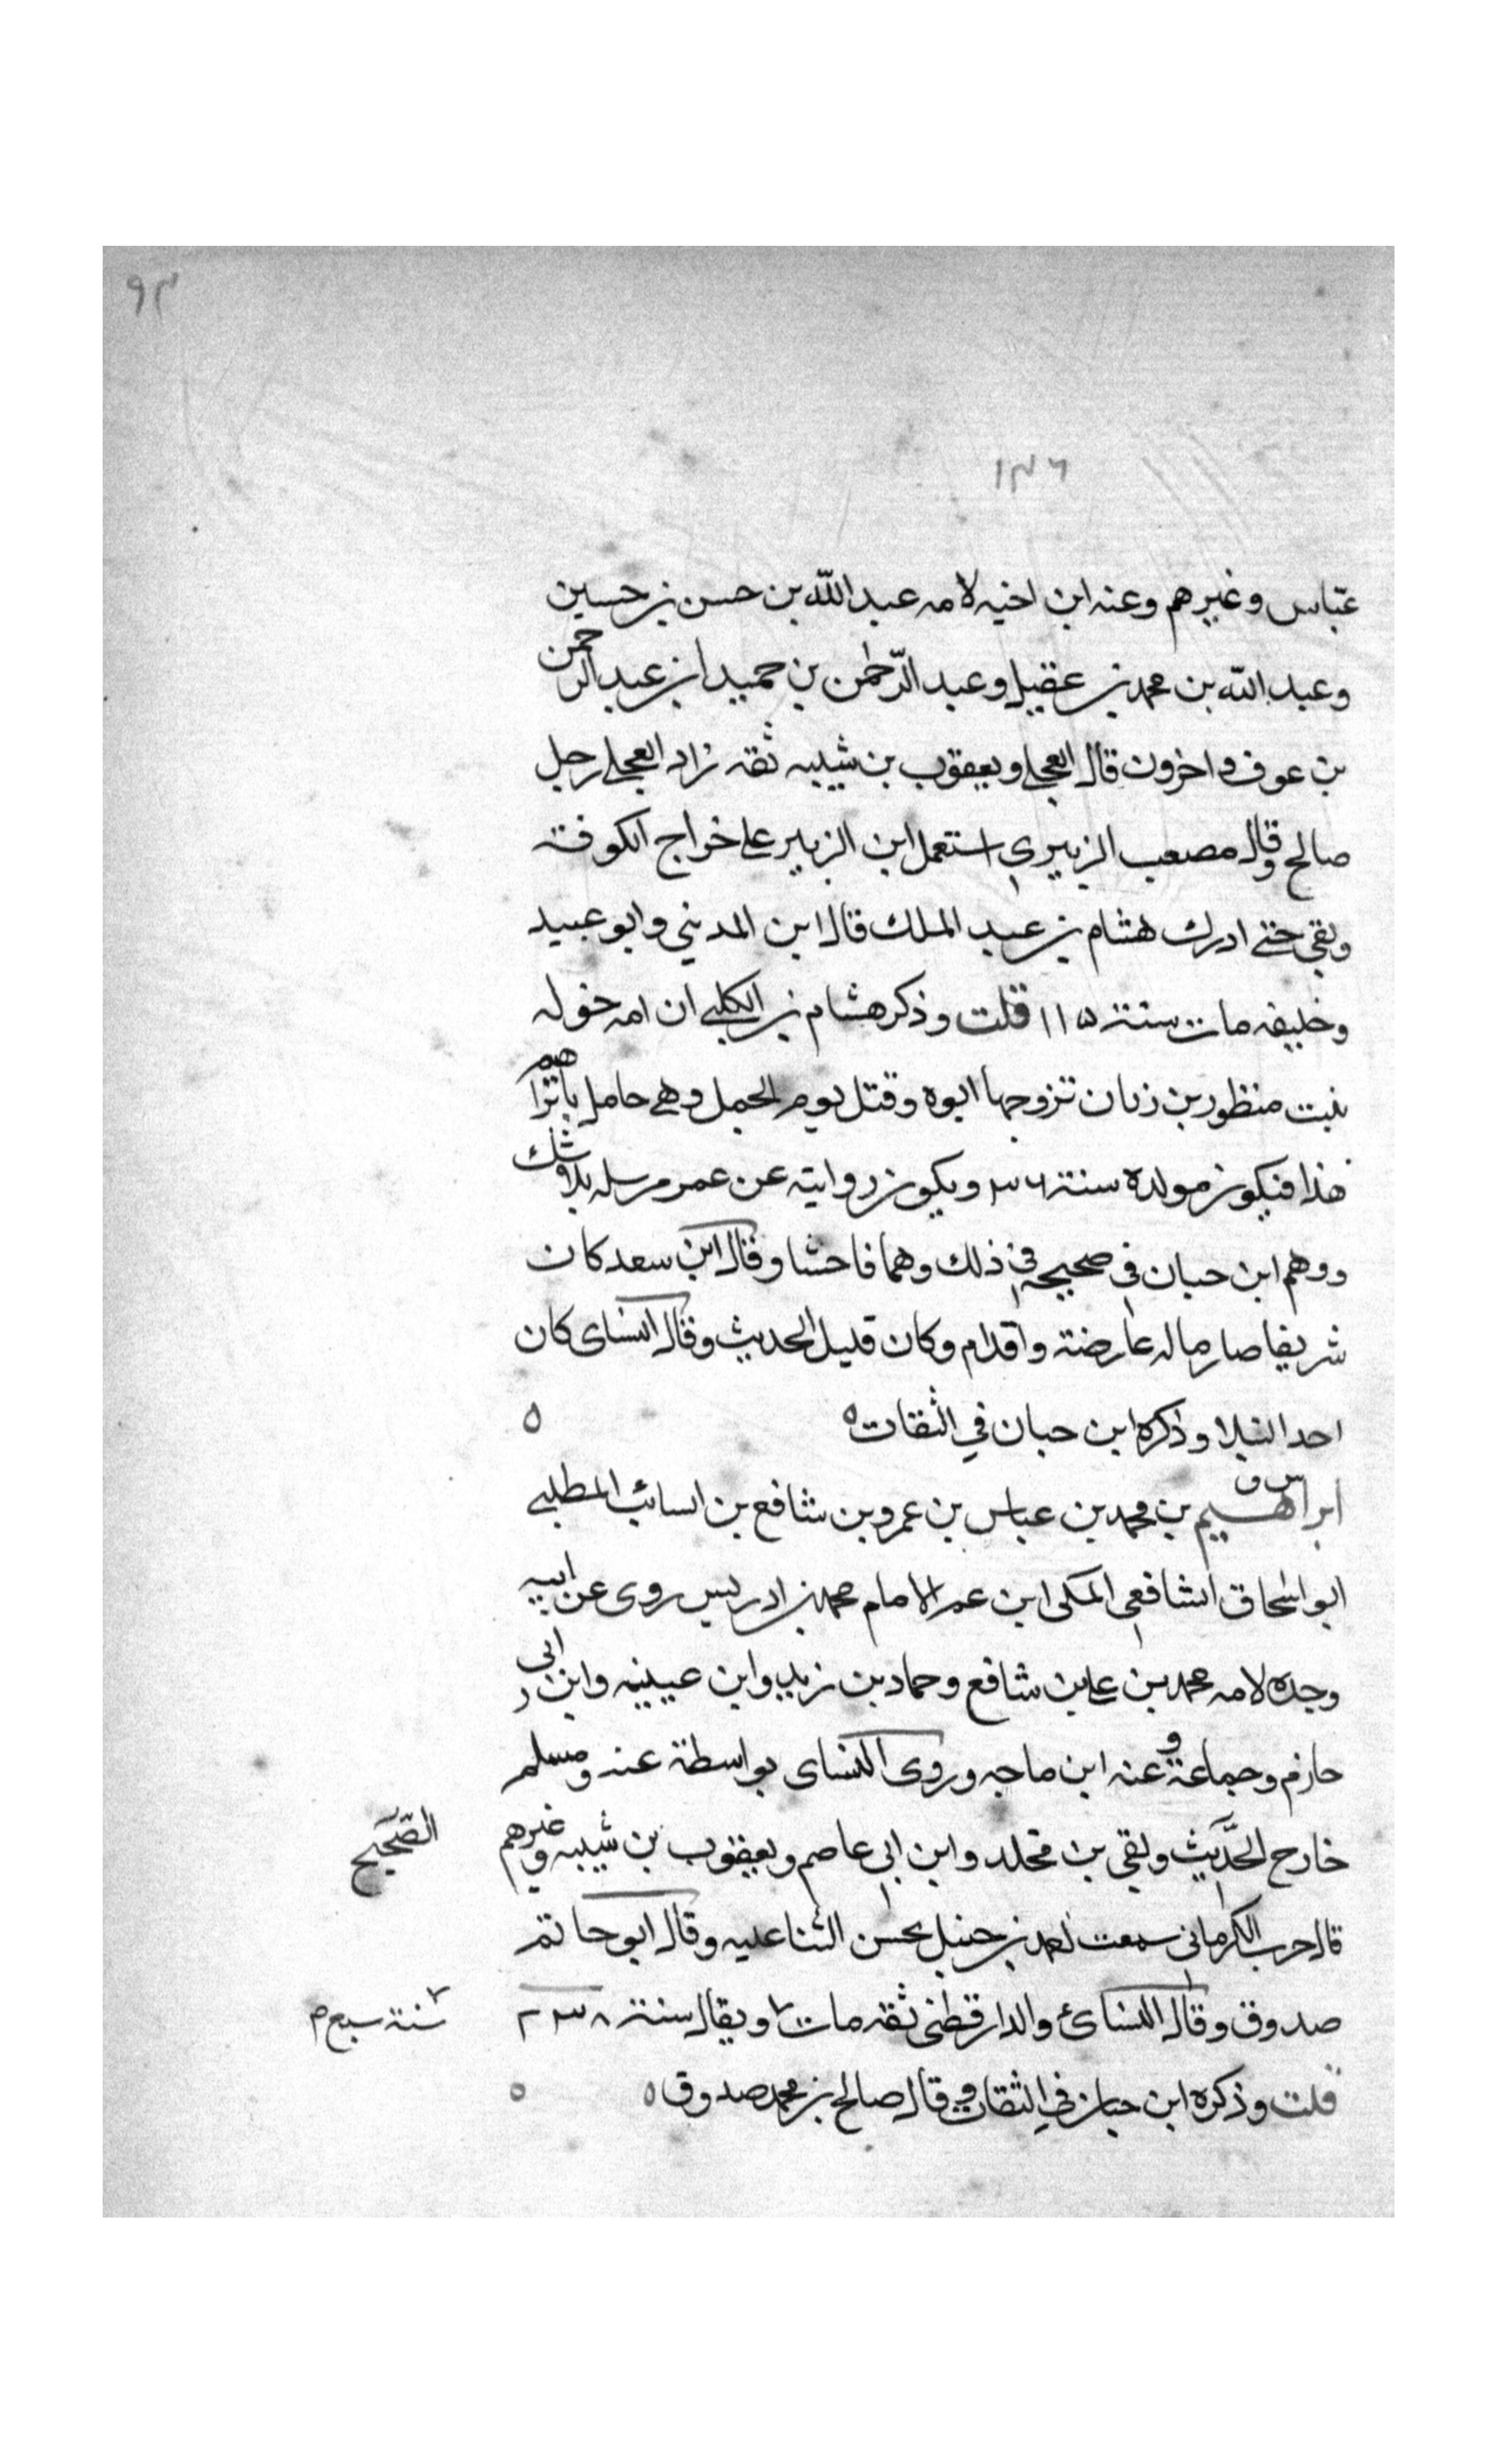 ٩٣
١٣٦
عباس وغيرهم وعنه ابن اخيه لامه عبد الله بن حسن بن حسين
وعبد الله بن محمد بن عقيل وعبد الرحمن بن حميد ابن عبد الرحمن
بن عوف واخرون قال العجلي ويعقوب بن شيبه ثقه زاد العجلي رجل
صالح وقال مصعب الزبيري استعمل ابن الزبير على خراج الكوفة
وبقي حتى ادرك هشام بن عبد الملك قال ابن المديني وابو عبيد
وخليفه مات سنة ١١٥ قلت وذكر هشام بن الكلبي ان امه خوله
بنت منظور بن زبان تزوجها ابوه وقتل يوم الجمل وهي حامل بابراهيم
هذا فيكون مولده سنة ٣٦ ويكون روايته عن عمر مرسله بلا شك
ووهم ابن حبان في صحيحه في ذلك وهما فاحشا وقال ابن سعد كان
شريفا صارما له عارضة واقدام وكان قليل الحديث وقال النساى كان
احد النبلا وذكره ابن حبان في الثقات ٥ ٥
س ق
ابراهيم بن محمد بن عباس بن عمرو بن شافع بن السائب المطلبي
ابو اسحاق الشافعي المكى ابن عم الامام محمد بن ادريس روى عن ابيه
وجده لامه محمد بن علي بن شافع وحماد بن زيد وابن عيينه وابن ابى
حازم وجماعة وعنه ابن ماجه وروى النساى بواسطة عنه ومسلم
خارج الحديث وبقي بن مخلد وابن ابى عاصم ويعقوب بن شيبه وغيرهم
الصحيح
قال حرب الكرمانى سمعت احمد بن حنبل يحسن الثنا عليه وقال ابو حاتم
صدوق وقال النسائ والدارقطنى ثقه مات ويقال سنة ٢٣٨
سنة سبع م
قلت وذكره ابن حبان في الثقات وقال صالح بن محمد صدوق ٥ ٥